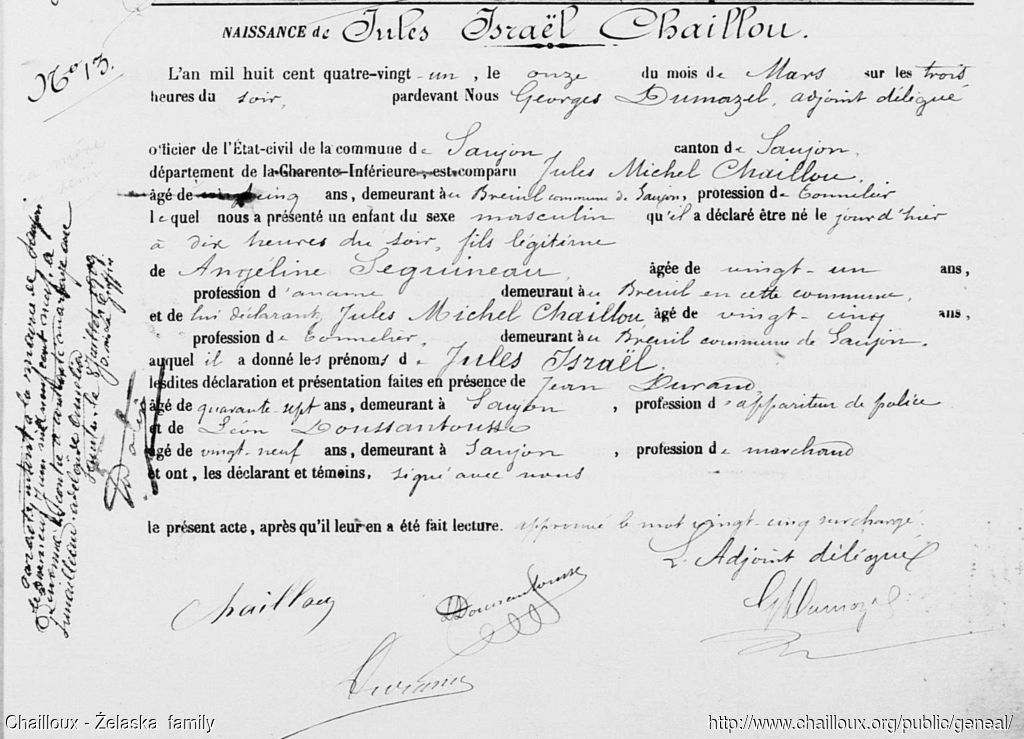 NAISSANCE de Jules Israël Chaillou.
No 13.
L'an mil huit cent quatre-vingt-un, le onze du mois de Mars sur les trois
heures du soir, pardevant Nous Georges Dumazel, adjoint délégué
officier de l'État-civil de la commune de Saujon canton de Saujon,
département de la Charente-Inférieure, est comparu Jules Michel Chaillou,
âgé de vingt-cinq ans, demeurant au Breuil commune de Saujon, profession de Tonnelier
lequel nous a présenté un enfant du sexe masculin qu'il a déclaré être né le jour d'hier
à dix heures du soir, fils légitime
de Angéline Seguineau, âgée de vingt-un ans,
profession d'aucune demeurant au Breuil en cette commune,
et de lui déclarant, Jules Michel Chaillou âgé de vingt-cinq ans,
profession de Tonnelier, demeurant au Breuil commune de Saujon,
auquel il a donné les prénoms de Jules Israël,
lesdites déclaration et présentation faites en présence de Jean Durand
âgé de quarante-sept ans, demeurant à Saujon, profession d'appariteur de police
et de Léon Doussantousse
âgé de vingt-neuf ans, demeurant à Saujon, profession de marchand
et ont, les déclarant et témoins, signé avec nous
le présent acte, après qu'il leur en a été fait lecture. approuvé le mot vingt-cinq surchargé.
L'Adjoint délégué
Chaillou
Doussantousse
GDumazel
Durand
Chailloux - Żelaska family
http://www.chailloux.org/public/geneal/